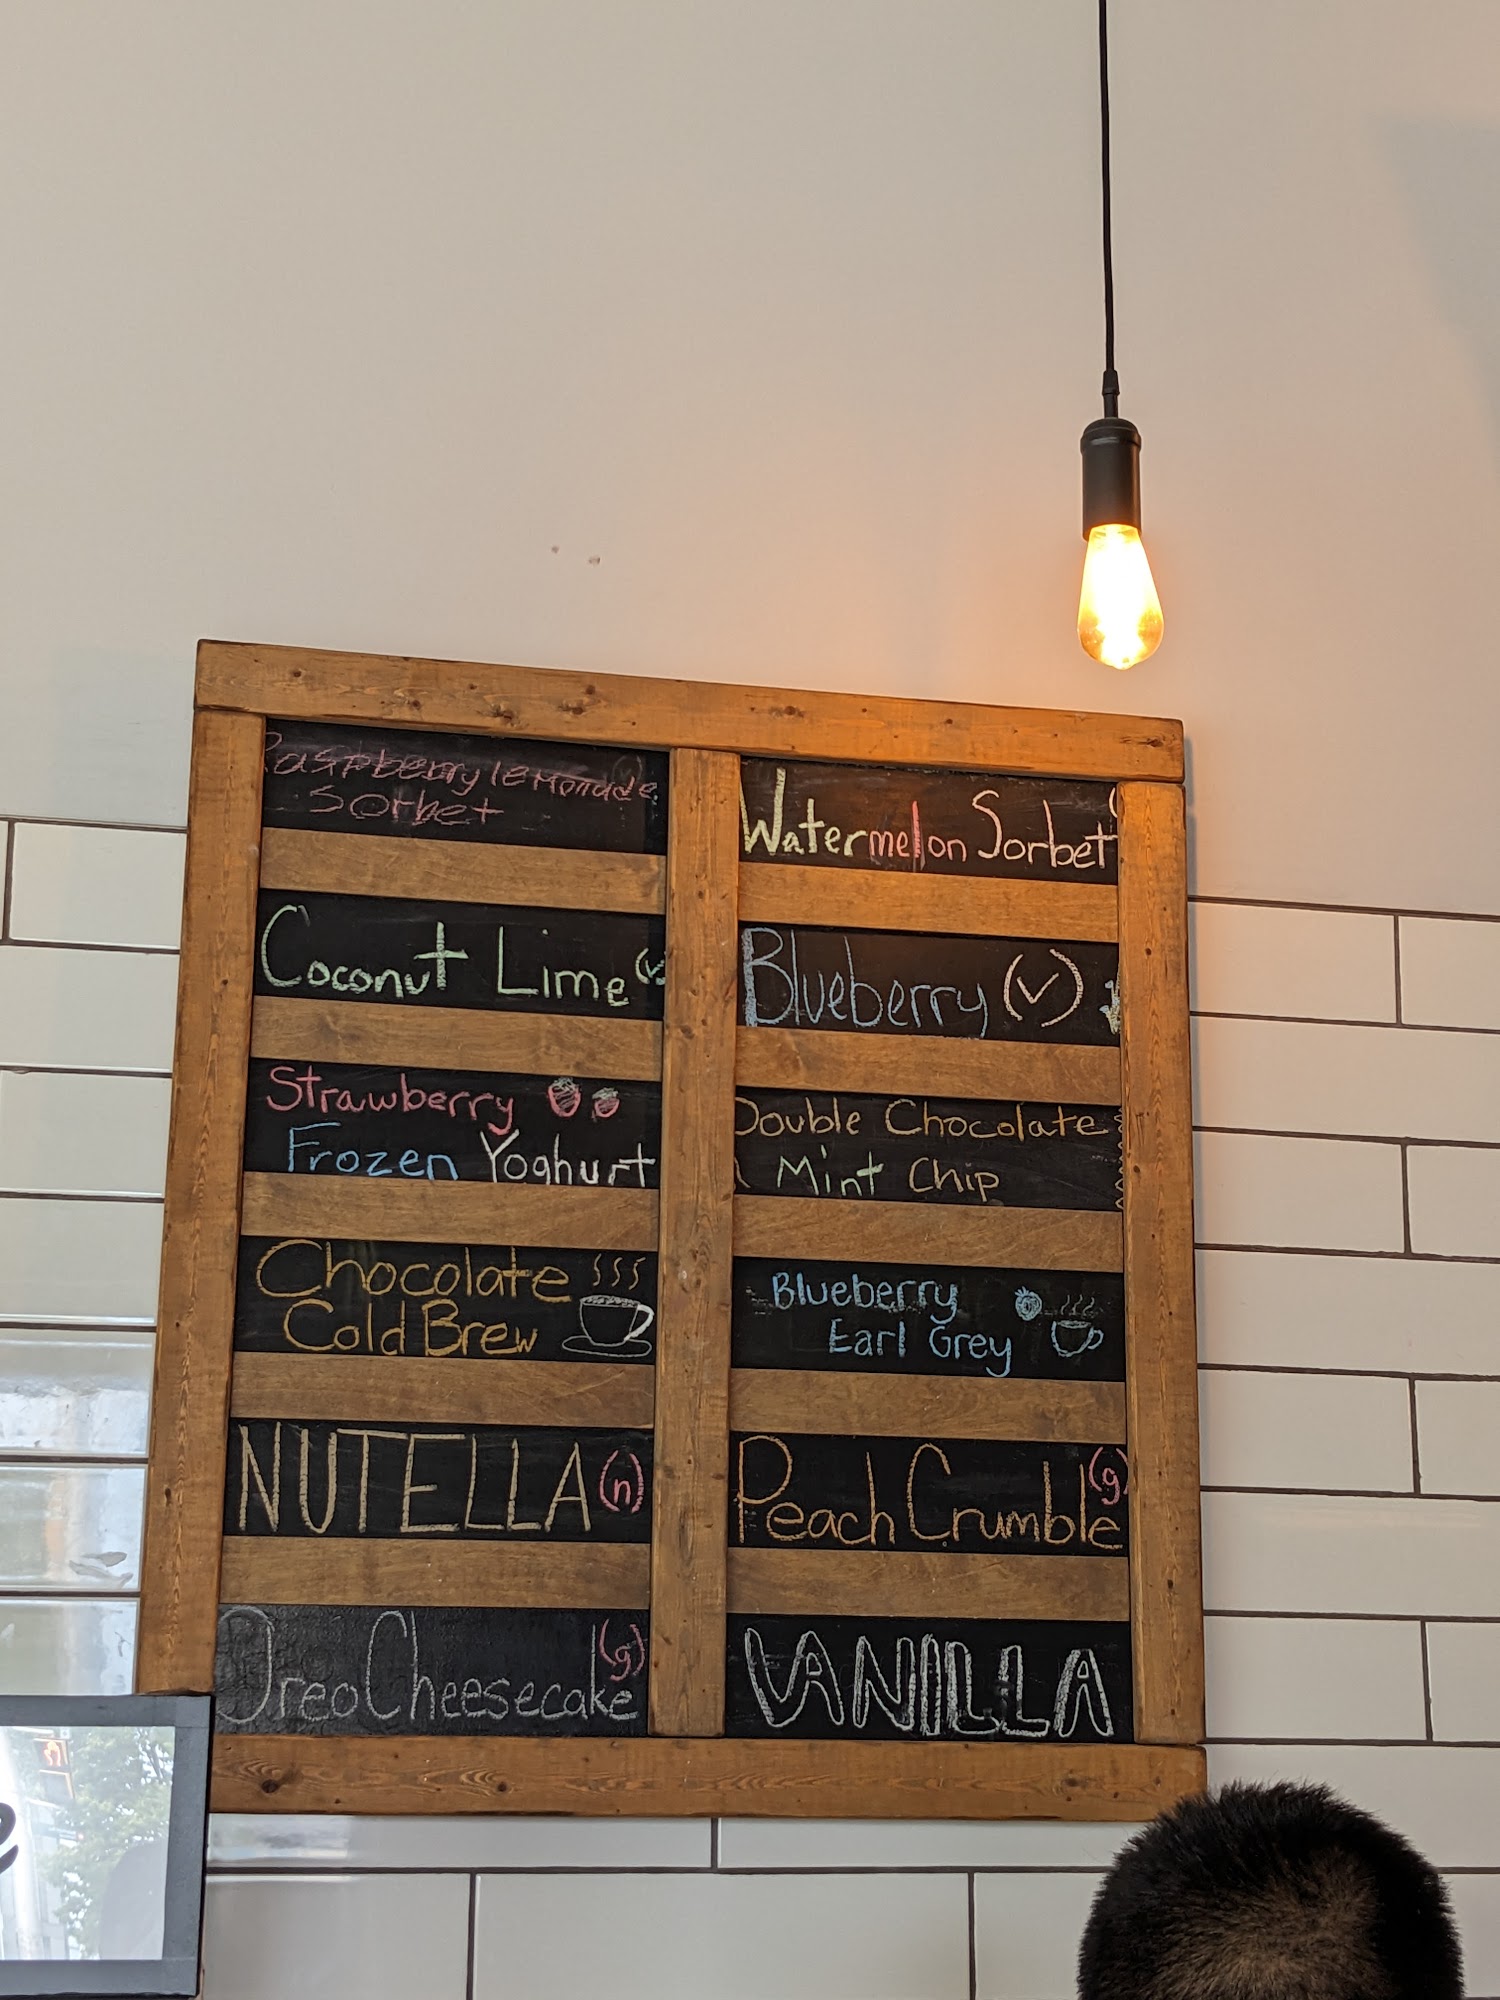 Raspberry lemonade
Sorbet
Coconut Lime (v
Strawberry
Frozen Yoghurt
Chocolate
Cold Brew
NUTELLA (n)
Oreo Cheesecake (g)
Watermelon Sorbet
Blueberry (✓)
Double Chocolate
Mint Chip
Blueberry
Earl Grey
Peach Crumble (g)
VANILLA